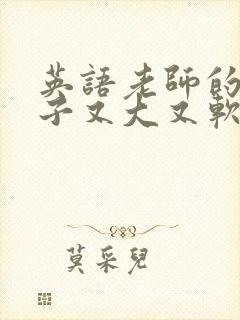 英語老師的
子又大又軟
莫采兒